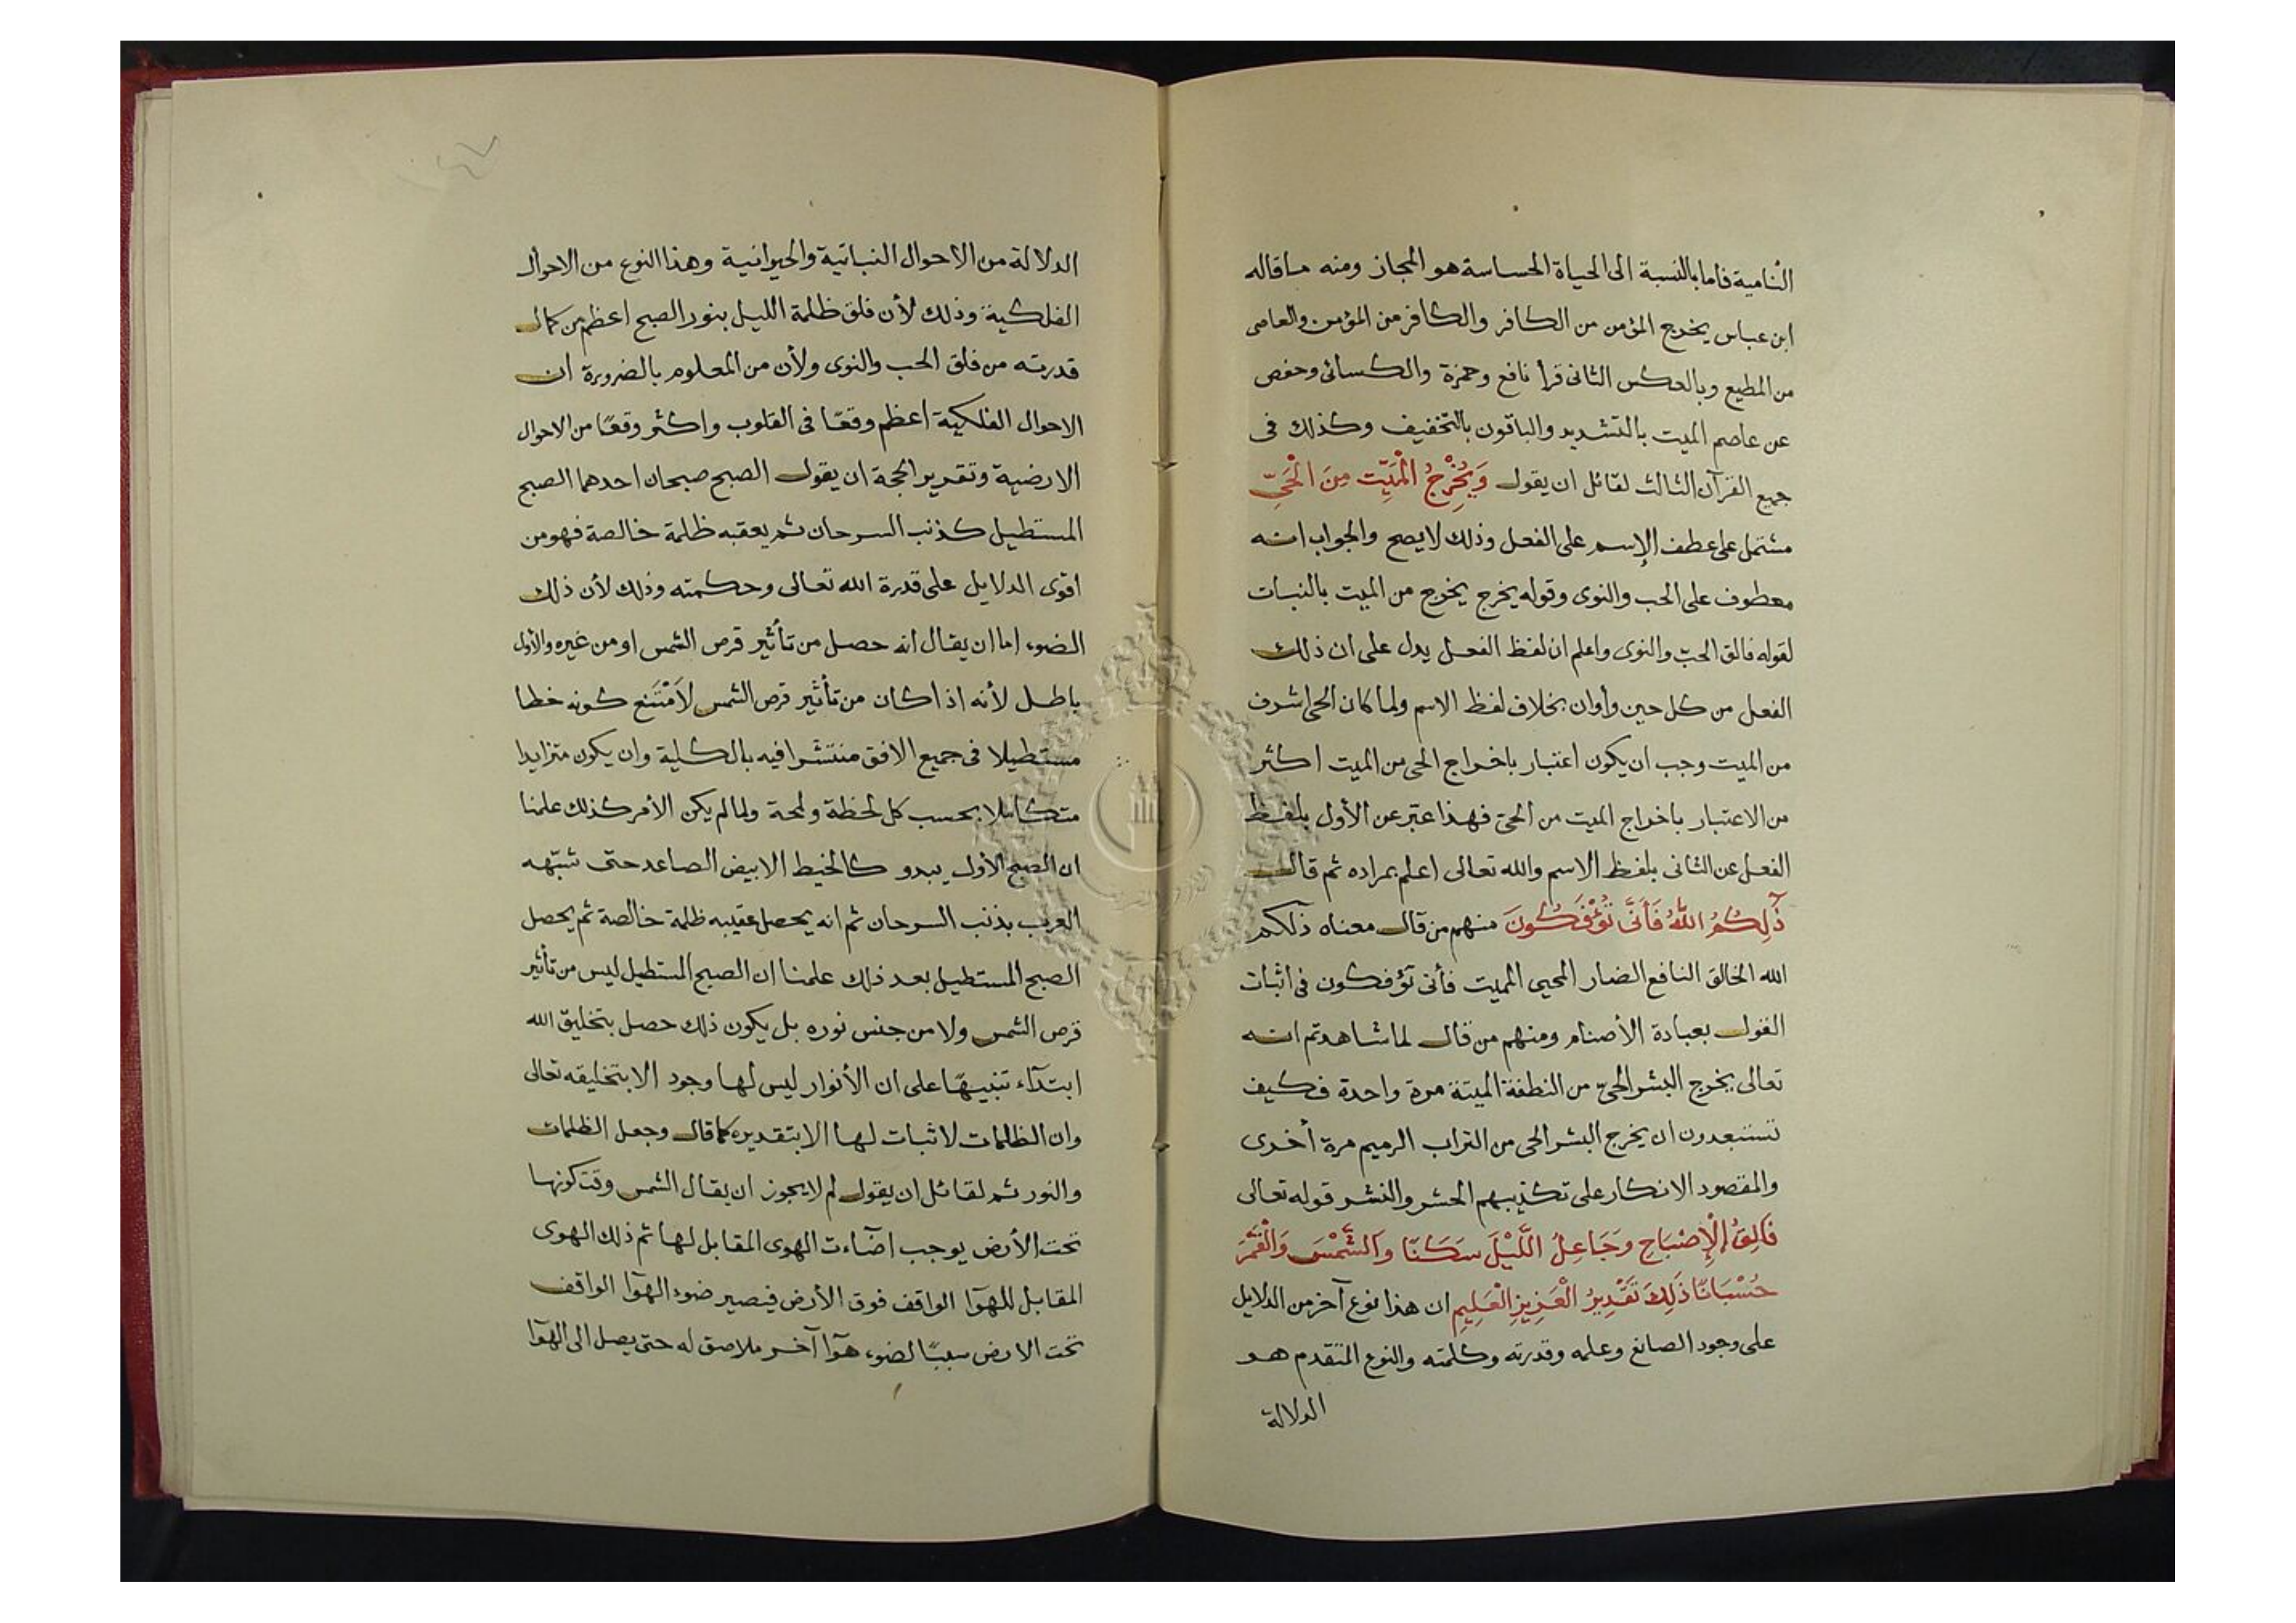 النامية فاما بالنسبة الى الحياة الحساسة هو المجاز ومنه ما قاله
ابن عباس يخرج المؤمن من الكافر والكافر من المؤمن والعاصى
من المطيع وبالعكس الثانى قرأ نافع وحمزة والكسائى وحفص
عن عاصم الميت بالتشديد والباقون بالتخفيف وكذلك فى
جميع القرآن الثالث لقائل ان يقول وَيُخْرِجُ الْمَيِّتِ مِنَ الْحَىِّ
مشتمل على عطف الإسم على الفعل وذلك لا يصح والجواب انه
معطوف على الحب والنوى وقوله يخرج يخرج من الميت بالنبات
لقوله فالق الحبّ والنوى واعلم ان لفظ الفعل يدل على ان ذلك
الفعل من كل حين وأوان بخلاف لفظ الاسم ولما كان الحى اشرف
من الميت وجب ان يكون اعتبار باخراج الحى من الميت اكثر
من الاعتبار باخراج الميت من الحىّ فهذا عبّر عن الأول بلفظ
الفعل عن الثانى بلفظ الاسم والله تعالى اعلم بمراده ثم قال
ذَلِكُمُ اللَّهُ فَأَنَّى تُؤْفَكُونَ منهم من قال معناه ذلكم
الله الخالق النافع الضار المحيى المميت فأنى تؤفكون فى اثبات
القول بعبادة الأصنام ومنهم من قال لما شاهدتم انه
تعالى يخرج البشر الحىّ من النطفة الميتة مرة واحدة فكيف
تستبعدون ان يخرج البشر الحى من التراب الرميم مرة أخرى
والمقصود الانكار على تكذيبهم الحشر والنشر قوله تعالى
فَالِقُ الْإِصْبَاحِ وَجَاعِلُ اللَّيْلَ سَكَنًا وَالشَّمْسَ وَالْقَمَرَ
حُسْبَانًا ذَلِكَ تَقْدِيرُ الْعَزِيزِ الْعَلِيمِ ان هذا نوع آخر من الدلايل
على وجود الصانع وعلمه وقدرته وكلمته والنوع المتقدم هو
الدلالة
الدلالة من الاحوال النباتية والحيوانية وهذا النوع من الاحوال
الفلكية وذلك لأن فلق ظلمة الليل بنور الصبح اعظم من كمال
قدرته من فلق الحب والنوى ولأن من المعلوم بالضرورة ان
الاحوال الفلكية اعظم وقعًا فى القلوب واكثر وقعًا من الاحوال
الارضية وتقرير الحجة ان يقول الصبح صبحان احدهما الصبح
المستطيل كذنب السرحان ثم يعقبه ظلمة خالصة فهو من
اقوى الدلايل على قدرة الله تعالى وحكمته وذلك لأن ذلك
الضوء اما ان يقال انه حصل من تأثير قرص الشمس او من غيره والأول
باطل لأنه اذا كان من تأثير قرص الشمس لَامْتَنع كونه خطا
مستطيلا فى جميع الافق منتشرا فيه بالكلية وان يكون متزايدا
متكاملا بحسب كل لحظة ولمحة ولما لم يكن الأمر كذلك علمنا
ان الصبح الأول يبدو كالخيط الابيض الصاعد حتى شبّهه
العرب بذنب السرحان ثم انه يحصل عقيبه ظلمة خالصة ثم يحصل
الصبح المستطيل بعد ذلك علمنا ان الصبح المستطيل ليس من تأثير
قرص الشمس ولا من جنس نوره بل يكون ذلك حصل بتخليق الله
ابتدآء تنبيهًا على ان الأنوار ليس لها وجود الا بتخليقه تعالى
وان الظلمات لا ثبات لها الا بتقديره كما قال وجعل الظلمات
والنور ثم لقائل ان يقول لم لا يجوز ان يقال الشمس وقت كونها
تحت الأرض يوجب اضآءت الهوى المقابل لها ثم ذلك الهوى
المقابل للهوآ الواقف فوق الأرض فيصير ضوء الهوآ الواقف
تحت الارض سببًا لضوء هوآ آخر ملاصق له حتى يصل الى الهوآ